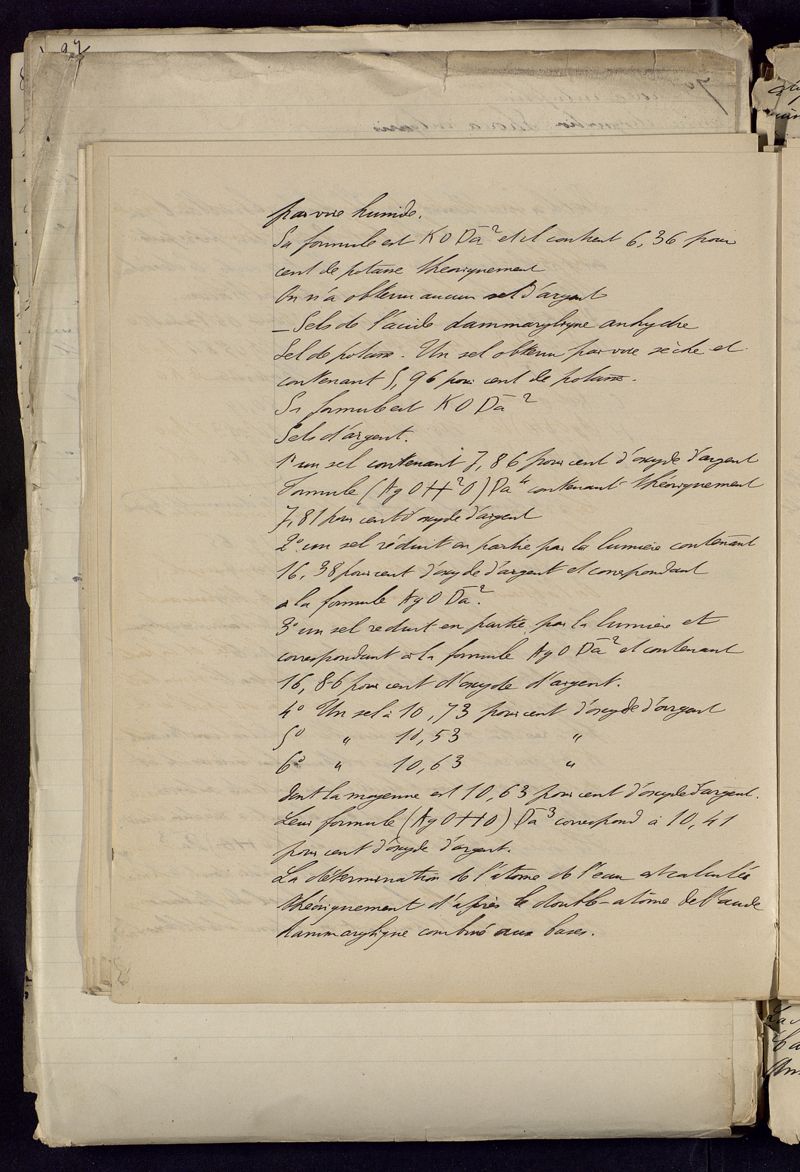 97
par voie humide.
Sa formule est KO Da² et il contient 6,36 pour
cent de potasse théoriquement
On n'a obtenu aucun sel d'argent
— Sels de l'acide dammarylique anhydre
Sel de potasse. Un sel obtenu par voie sèche et
contenant 5,96 pour cent de potasse.
Sa formule est KO Da²
Sels d'argent.
1° un sel contenant 7,86 pour cent d'oxyde d'argent
Formule (AgO H²O) Da⁴ contenant théoriquement
7,81 pour cent d'oxyde d'argent
2° un sel réduit en partie par la lumière contenant
16,38 pour cent d'oxyde d'argent et correspondant
à la formule AgO Da².
3° un sel reduit en partie par la lumière et
correspondant à la formule AgO Da² et contenant
16,86 pour cent d'oxyde d'argent.
4° Un sel à 10,73 pour cent d'oxyde d'argent
5° " 10,53 "
6° " 10,63 "
dont la moyenne est 10,63 pour cent d'oxyde d'argent.
Leur formule (AgO HO) Da³ correspond à 10,41
pour cent d'oxyde d'argent.
La détermination de l'atome de l'eau est calculée
théoriquement d'après le double-atôme de l'acide
dammarylique combiné aux bases.